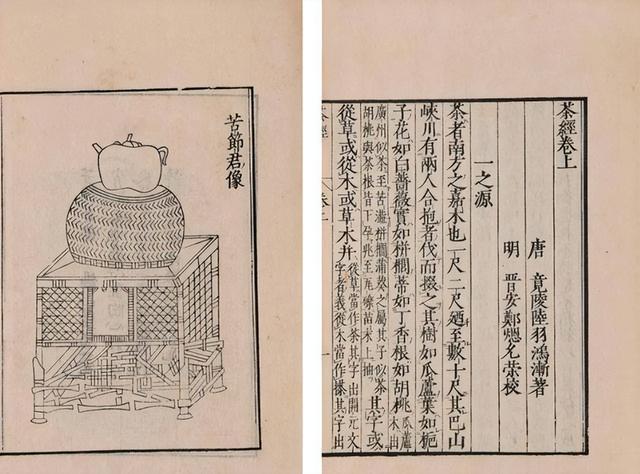 茶經卷上
唐 竟陵陸羽鴻漸著
明 晉安鄭熜允榮校
一之源
茶者南方之嘉木也一尺二尺廼至數十尺其巴山
峽川有兩人合抱者伐而掇之其樹如瓜蘆葉如梔
子花如白薔薇實如栟櫚蒂如丁香根如胡桃瓜蘆木出
廣州似茶至苦澁栟櫚蒲葵之屬其子似茶
胡桃與茶根皆下孕兆至瓦礫苗木上抽
其字或
從草或從木或草木并
從草當作茶其字出開元文
字者義從木當作搽其字出
苦節君像